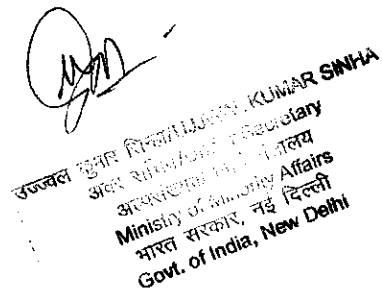 उज्ज्वल कुमार सिन्हा/UJJWAL KUMAR SINHA
अवर सचिव/Under Secretary
अल्पसंख्यक कार्य मंत्रालय
Ministry of Minority Affairs
भारत सरकार, नई दिल्ली
Govt. of India, New Delhi